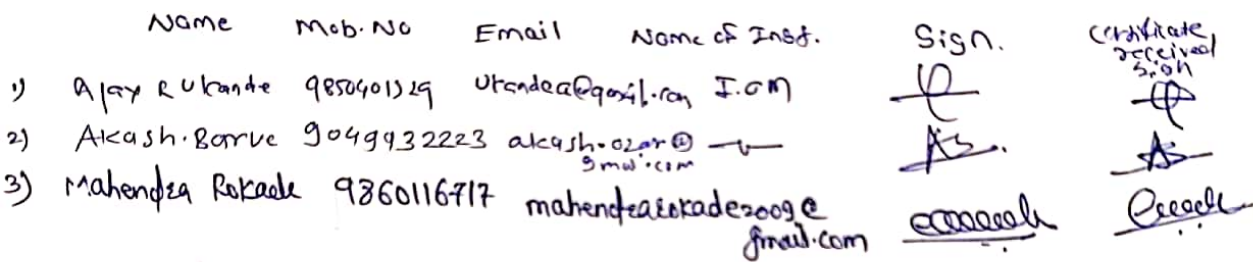 Name Mob.No Email Name of Inst. Sign. Certificate received Sign
1) Ajay R Ukande 9850401329 Urandea@gmail.com I.O.M
2) Akash.Barve 9049932223 akash.ozar@gmail.com
3) Mahendra Rokade 9860116717 mahendrarokade2009@gmail.com